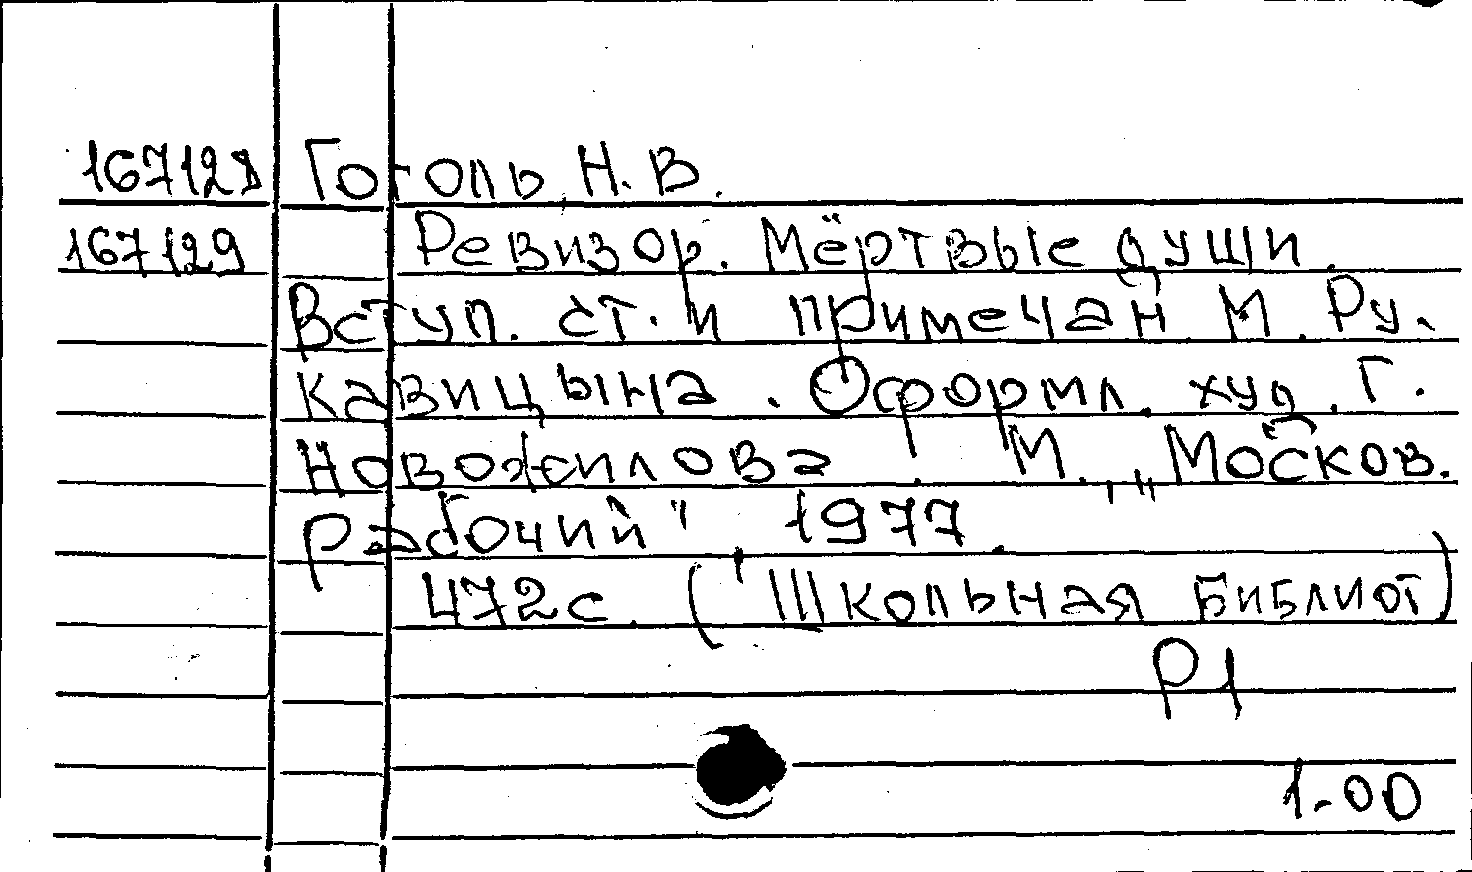 167128 Гоголь Н. В.
167129 Ревизор. Мёртвые души.
Вступ. ст. и примечан М. Ру.
кавицына. Оформл. худ. Г.
Новожилова. М., „Москов.
рабочий", 1977.
472с. (Школьная библиот)
Р1
1-00